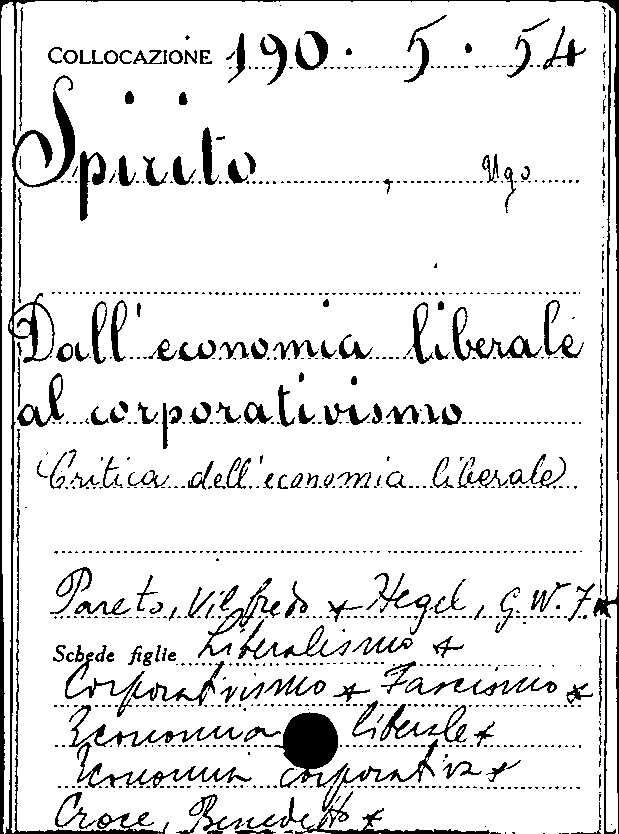 COLLOCAZIONE 190. 5. 54
Spirito, Ugo
Dall'economia liberale
al corporativismo
(Critica dell'economia liberale)
Pareto, Vilfredo * Hegel, G. W. F. *
Schede figlie Liberalismo *
Corporativismo * Fascismo *
Economia liberale *
Economia corporativa *
Croce, Benedetto *